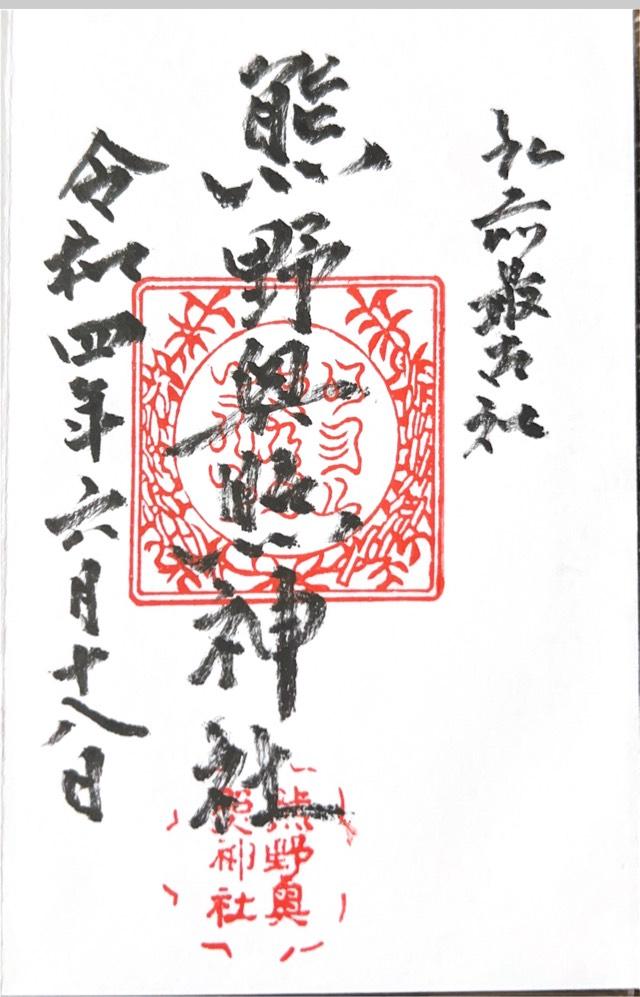 弘前最古社
熊野奥照神社
令和四年六月十八日
熊野奥
照神社